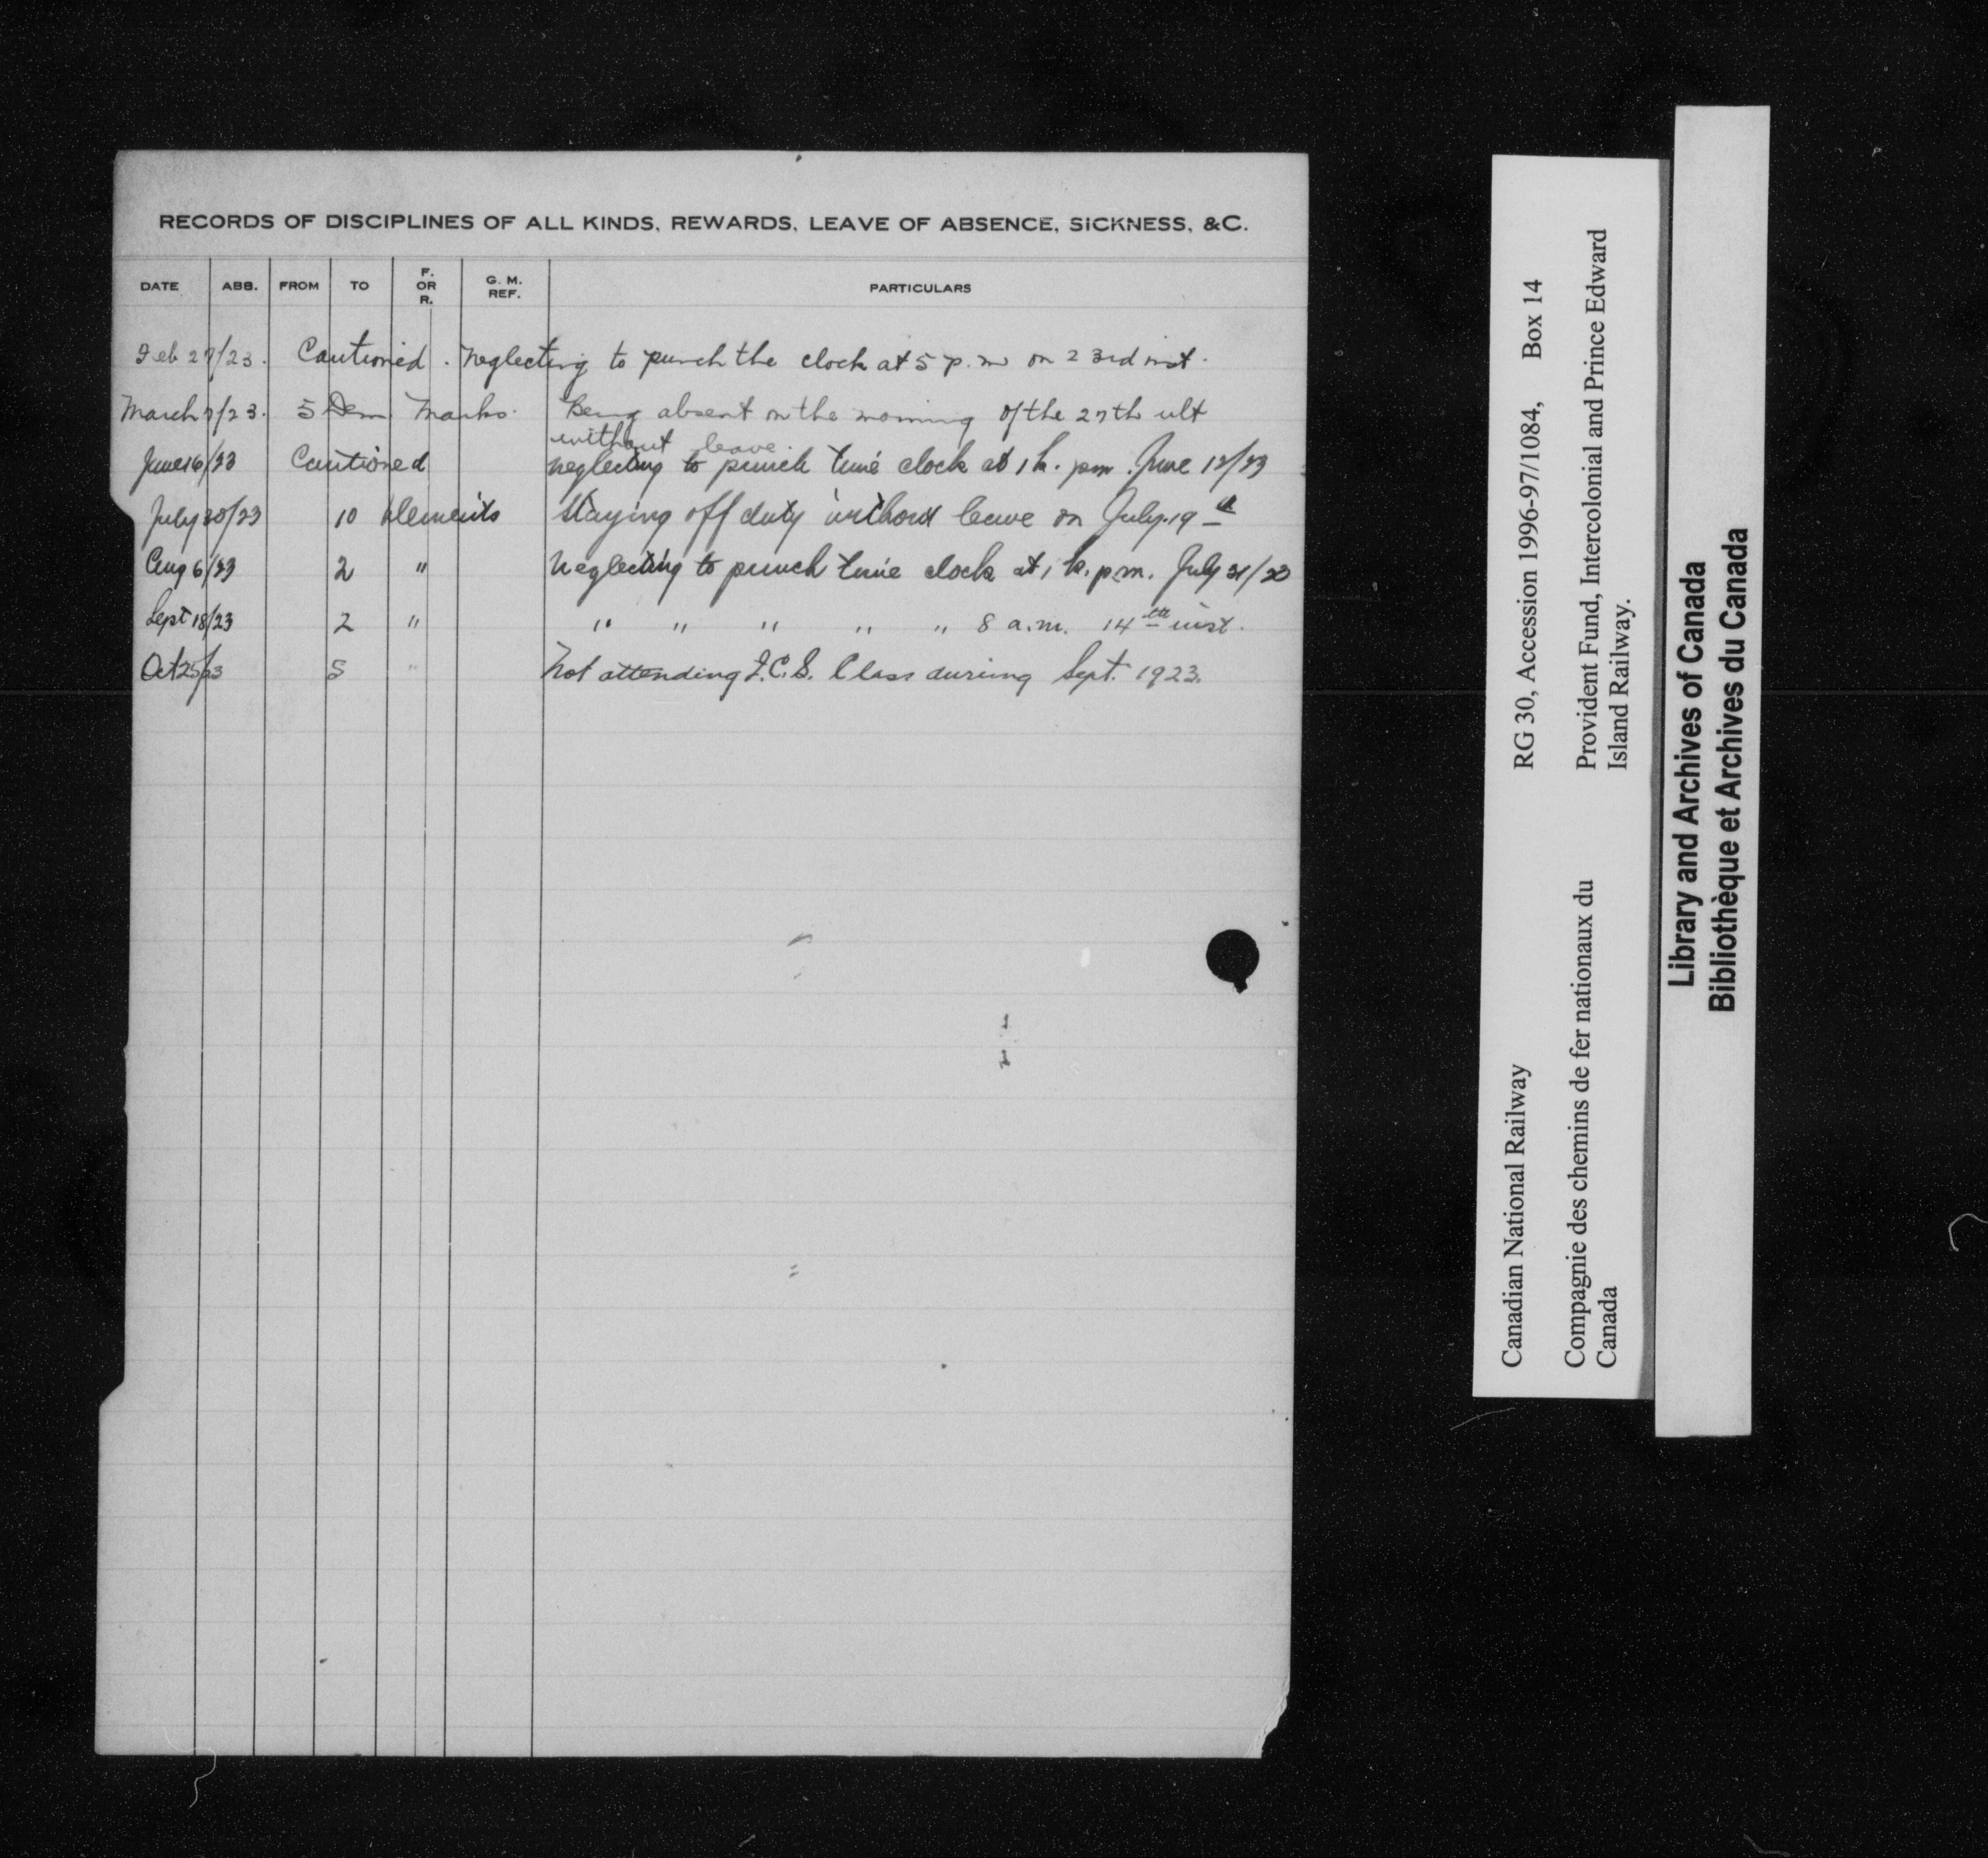 RECORDS OF DISCIPLINES OF ALL KINDS, REWARDS, LEAVE OF ABSENCE, SICKNESS, &C.
DATE ABB. FROM TO F. OR R. G. M. REF. PARTICULARS
Feb 27/23. Cautioned. Neglecting to punch the clock at 5 p.m on 23rd inst.
March 7/23. 5 Dem Marks. Being absent on the morning of the 27th ult
without leave.
June 16/23 Cautioned neglecting to punch time clock at 1 k. pm. June 12/23
July 30/23 10 demerits Staying off duty without leave on July. 19th
Aug 6/23 2 " Neglecting to punch time clock at 1 k. p.m. July 31/23
Sept 18/23 2 " " " " " " 8 a.m. 14th inst.
Oct 25/23 5 " Not attending I.C.S. Class during Sept. 1923.
Canadian National Railway RG 30, Accession 1996-97/1084, Box 14
Compagnie des chemins de fer nationaux du Canada
Provident Fund, Intercolonial and Prince Edward Island Railway.
Library and Archives of Canada
Bibliothèque et Archives du Canada